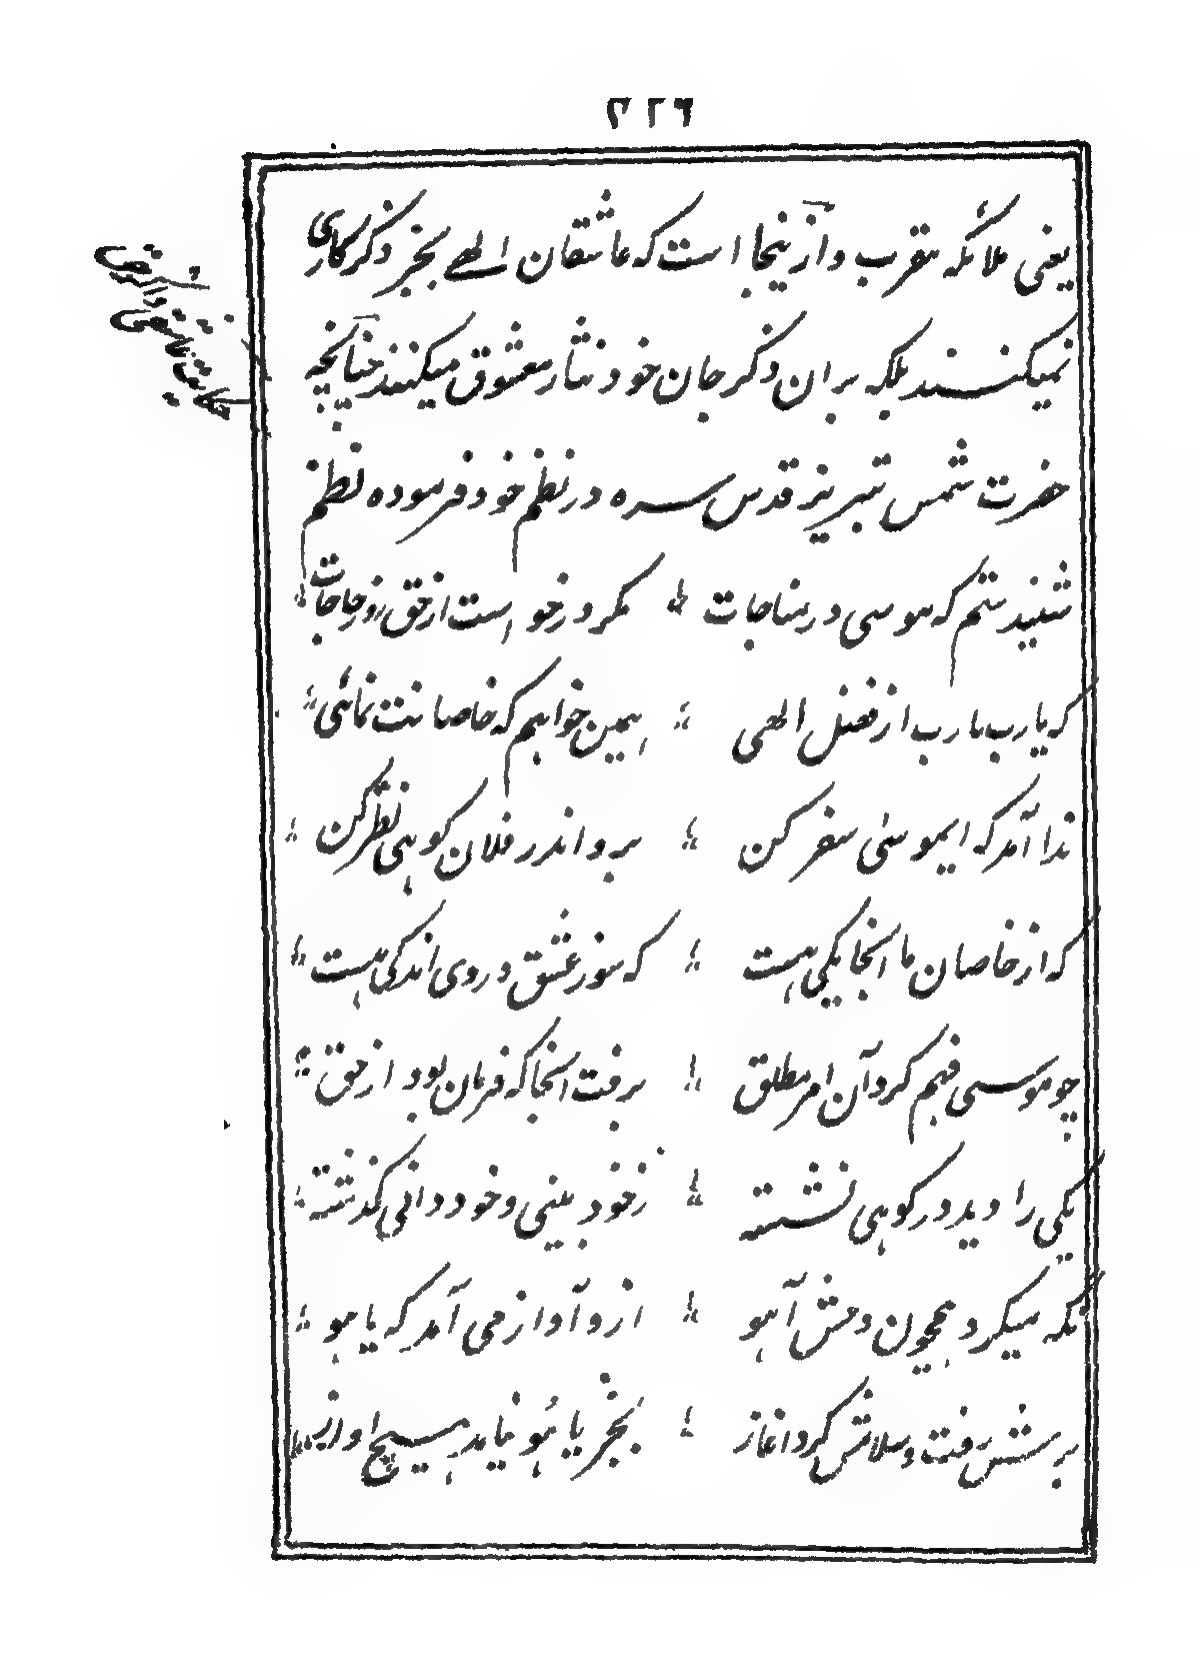 یعنی ملائکه مقرب و ازینجا است که عاشقان الهے بجز ذکر کاری
نمیکنند بلکه بران ذکر جان خود نثار معشوق میکنند چنانچه
حضرت شمس تبریز قدس سره در نظم خود فرموده نظم
شنیدستم که موسی در مناجات مگر درخواست از حق روز حاجات
که یارب یارب از فضل الهی همین خواهم که خاصانت نمائی
ندا آمد که ایموسی سفر کن برو اندر فلان کوهی نظر کن
که از خاصان ما انجا یکی هست که سوز عشق در وی اندکی هست
چو موسی فهم کرد آن امر مطلق برفت انجا که فرمان بود از حق
یکی را دید در کوهی نشسته زخود بینی و خود دانی گذشته
نگه میکرد همچون وحش آهو ازو آواز می آمد که یا هو
برشش رفت و سلامش کرد اغاز بجز یا هو نیامد هیچ اواز